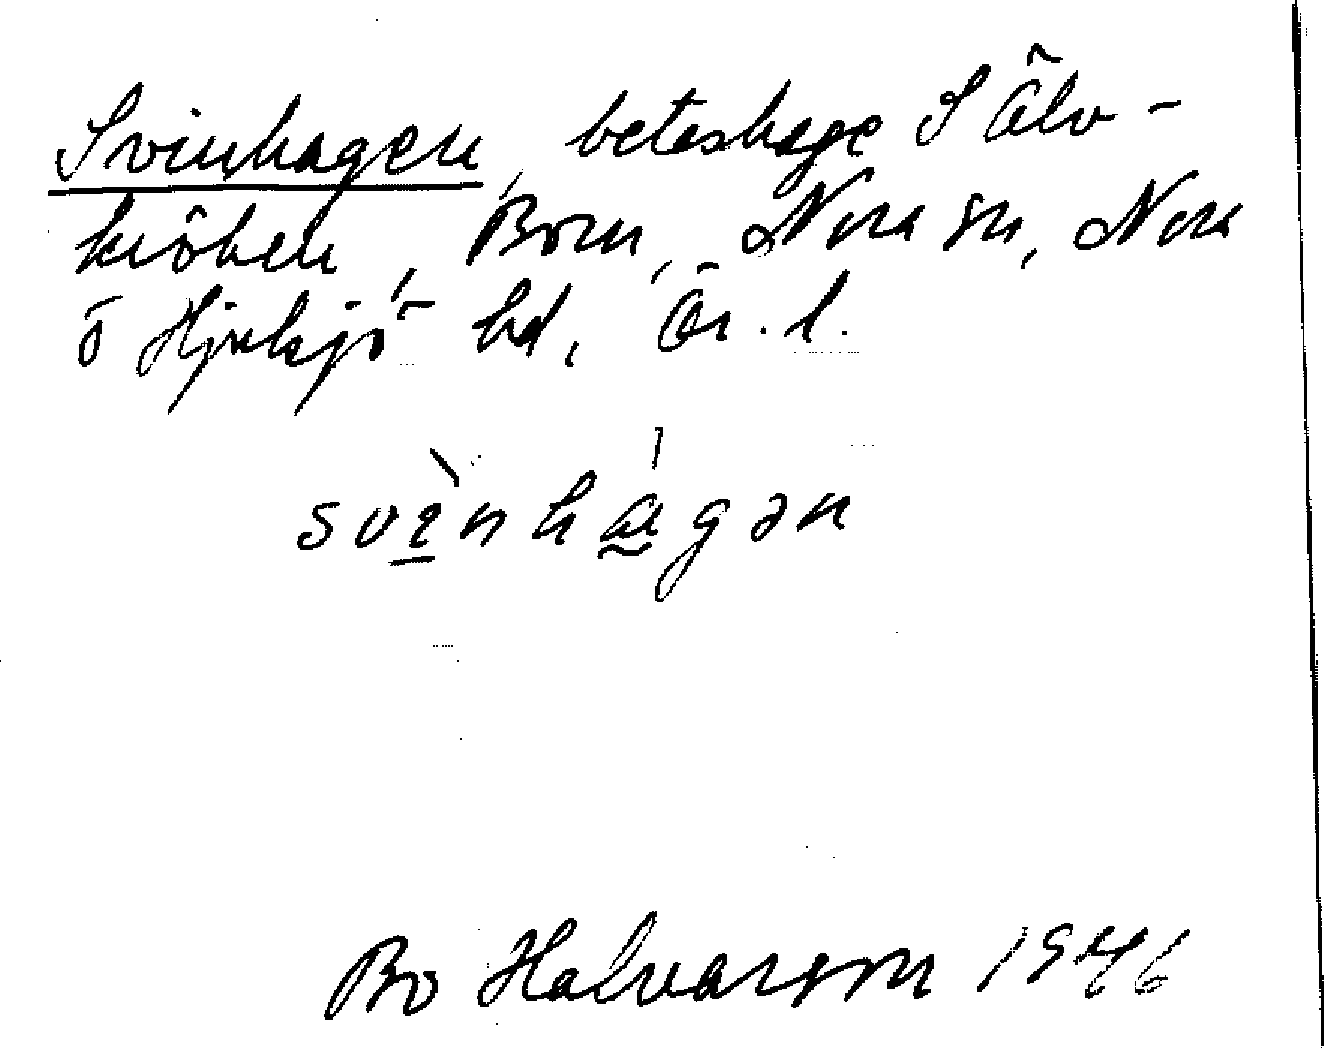 Svinhagen, beteshage S Älv-
kröken, Born, Nora sn, Nora
o Hjulsjö hd, Ör. l.
svìnhágən
Bo Halvarson 1946